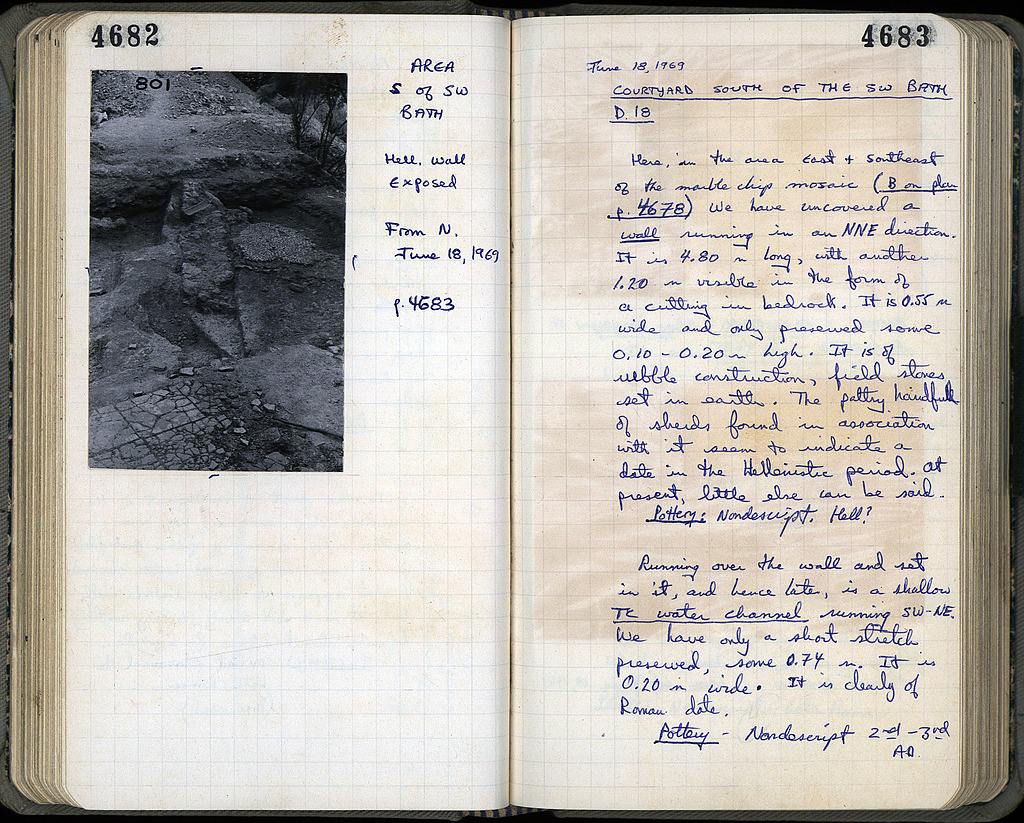 4682
801
AREA
S of SW
BATH
Hell. Wall
Exposed
From N.
June 18, 1969
p. 4683
4683
June 18, 1969
COURTYARD SOUTH OF THE SW BATH
D. 18
Here, in the area East + Southeast
of the marble chip mosaic (B on plan
p. 4678) We have uncovered a
wall running in an NNE direction.
It is 4.80 m long, with another
1.20 m visible in the form of
a cutting in bedrock. It is 0.55 m
wide and only preserved some
0.10 - 0.20 m high. It is of
rubble construction, field stones
set in earth. The paltry handfull
of sherds found in association
with it seem to indicate a
date in the Hellenistic period. At
present, little else can be said.
Pottery: Nondescript. Hell?
Running over the wall and set
in it, and hence later, is a shallow
TC water channel running SW-NE.
We have only a short stretch
preserved, some 0.74 m. It is
0.20 m wide. It is clearly of
Roman date.
Pottery - Nondescript 2nd - 3rd
AD.